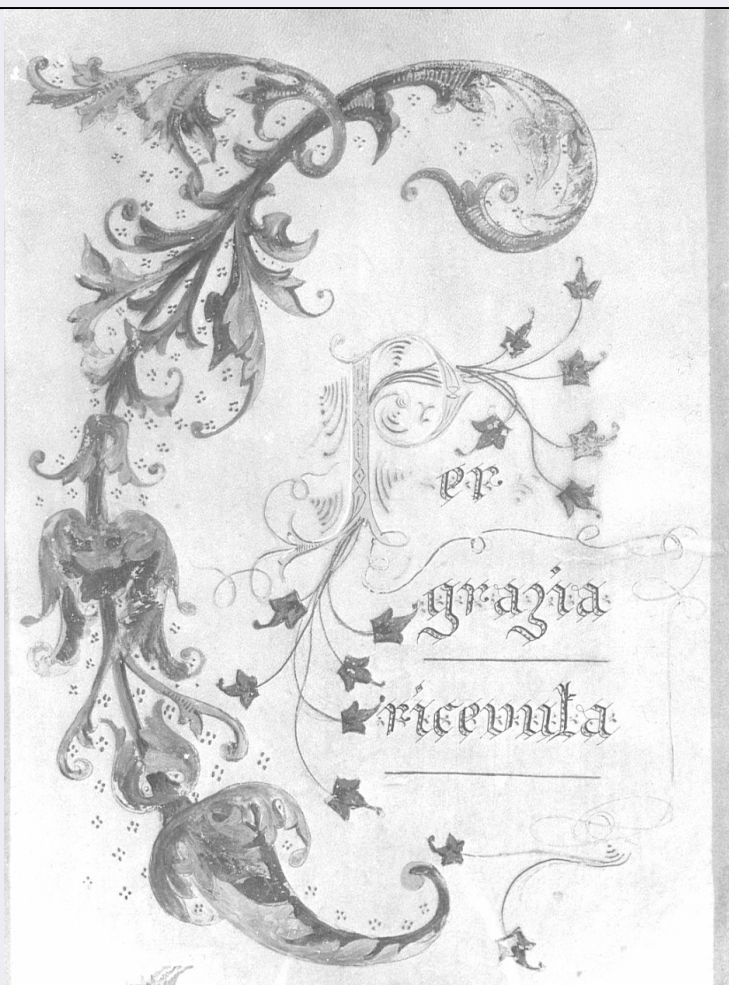 Per
grazia
ricevuta